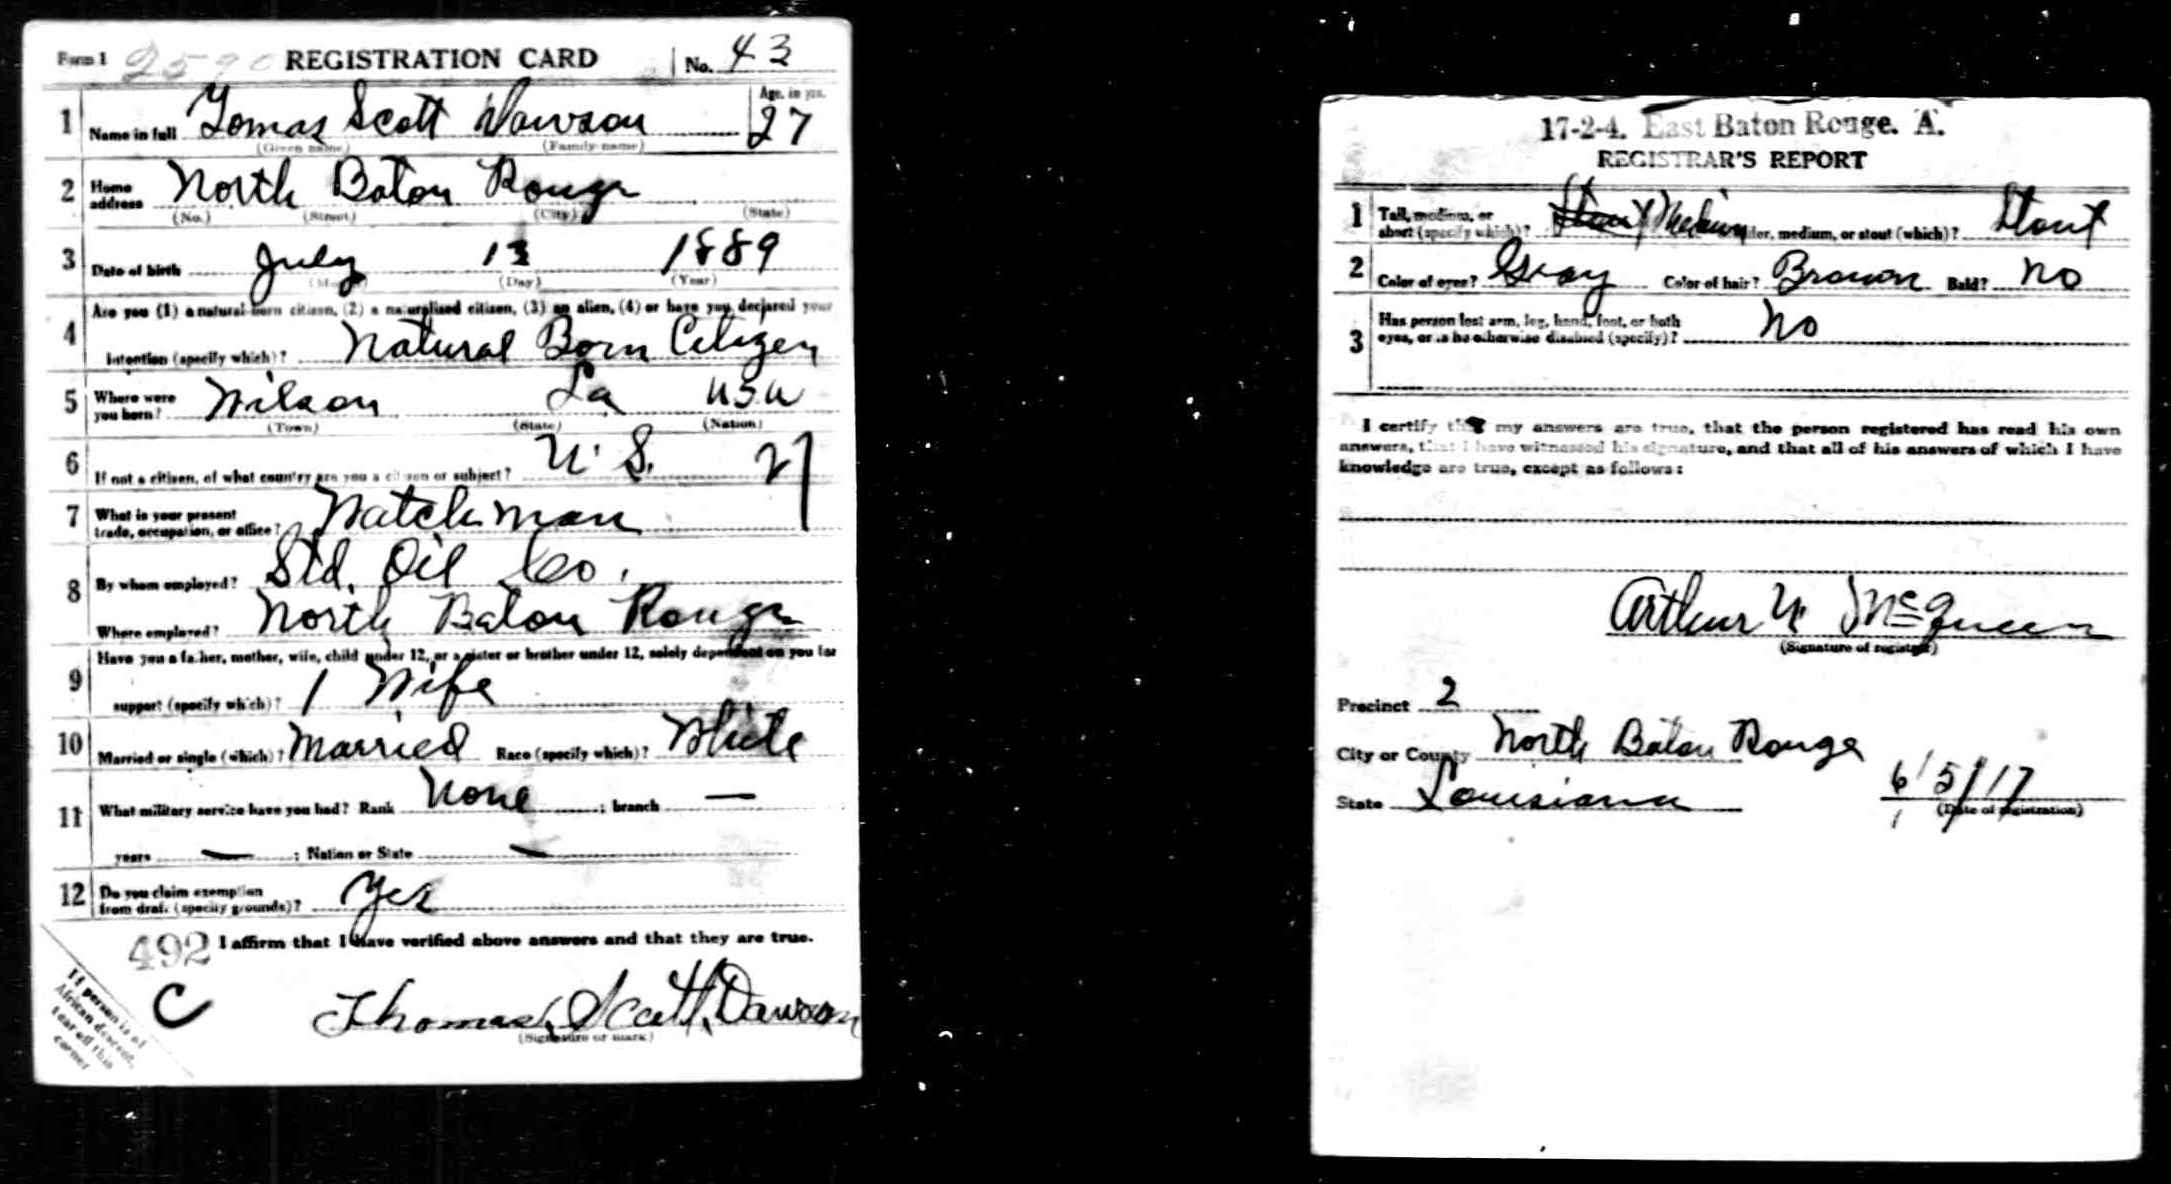 Form 1 2590 REGISTRATION CARD No. 43
1 Name in full Tomas Scott Dawson Age, in yrs. 27
(Given name) (Family name)
2 Home address North Baton Rouge
(No.) (Street) (City) (State)
3 Date of birth July 13 1889
(Month) (Day) (Year)
Are you (1) a natural-born citizen, (2) a naturalized citizen, (3) an alien, (4) or have you declared your
4 intention (specify which)? Natural Born Citizen
5 Where were you born? Wilson La USA
(Town) (State) (Nation)
6 If not a citizen, of what country are you a citizen or subject? U.S. 27
7 What is your present trade, occupation, or office? Watchman
8 By whom employed? Std. Oil Co.
Where employed? North Baton Rouge
Have you a father, mother, wife, child under 12, or a sister or brother under 12, solely dependent on you for
9 support (specify which)? 1 Wife
10 Married or single (which)? Married Race (specify which)? White
11 What military service have you had? Rank None ; branch —
years — ; Nation or State —
12 Do you claim exemption from draft (specify grounds)? Yes
492 I affirm that I have verified above answers and that they are true.
C
Thomas, Scott, Dawson
(Signature or mark)
If person is of
African descent,
tear off this
corner
17-2-4. East Baton Rouge. A.
REGISTRAR'S REPORT
1 Tall, medium, or short (specify which)? Stout Medium der, medium, or stout (which)? Stout
2 Color of eyes? Gray Color of hair? Brown Bald? No
3 Has person lost arm, leg, hand, foot, or both eyes, or is he otherwise disabled (specify)? No
I certify that my answers are true, that the person registered has read his own
answers, that I have witnessed his signature, and that all of his answers of which I have
knowledge are true, except as follows:
Arthur McQueen
(Signature of registrar)
Precinct 2
City or County North Baton Rouge
State Louisiana 6/5/17
(Date of registration)